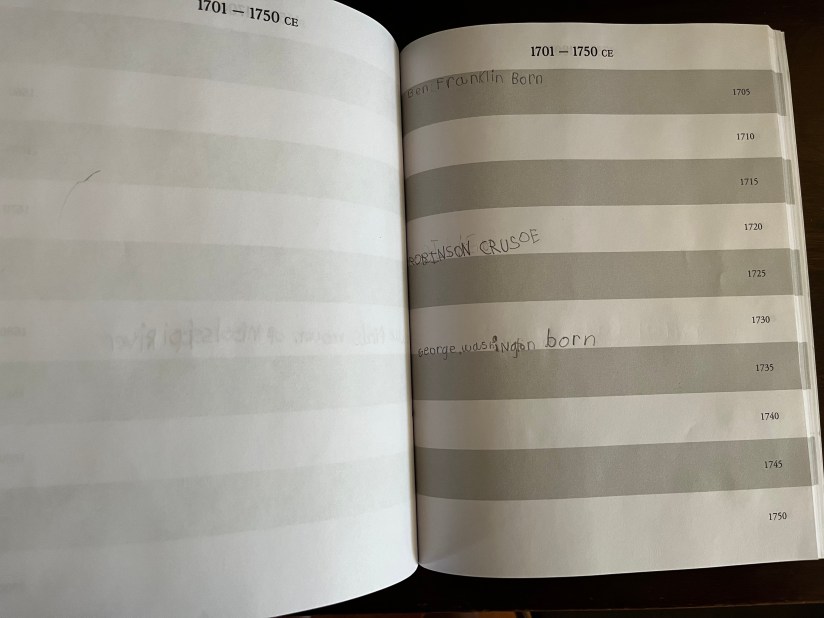 1701 – 1750 CE
1701 – 1750 CE
Ben Franklin Born
1705
1710
1715
1720
ROBINSON CRUSOE
1725
1730
George washington born
1735
1740
1745
1750